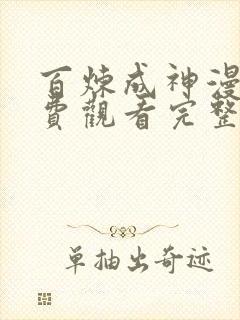 百炼成神漫
費觀看完整
单抽出奇迹